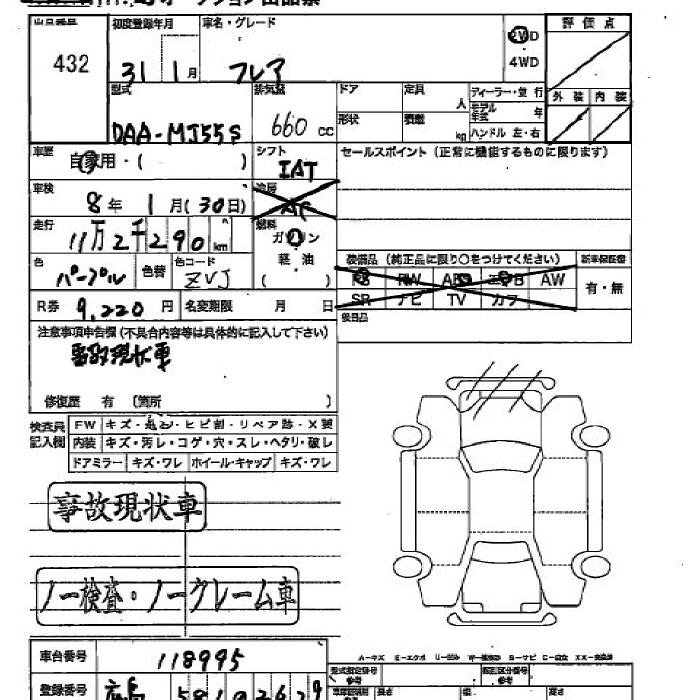 出品番号 初度登録年月 車名・グレード 評価点
432 31 1月 フレア 2WD
4WD
型式 排気量 ドア 定員 人 ディーラー・並行 外装 内装
DAA-MJ55S 660 cc 形状 積載 kg モデル年式 年
ハンドル 左・右
車歴 自家用・( ) シフト IAT セールスポイント (正常に機能するものに限ります)
車検 8年 1月(30日) 冷房 AC
走行 11万2千290 km 燃料 ガソリン
軽油
( )
装備品 (純正品に限り○をつけてください) 新車保証書
色 パープル 色替 色コード ZVJ
PS PW ABS エアB AW 有・無
SR ナビ TV カワ
R券 9,220円 名変期限 月 日
後日品
注意事項申告欄 (不具合内容等は具体的に記入して下さい)
事故現状車
修復歴 有 (箇所 )
検査員記入欄 FW キズ・飛石・ヒビ割・リペア跡・X要
内装 キズ・汚レ・コゲ・穴・スレ・ヘタリ・破レ
ドアミラー キズ・ワレ ホイール・キャップ キズ・ワレ
事故現状車
ノー検査・ノークレーム車
車台番号 118995
登録番号
型式指定番号 参考 類別区分番号 参考